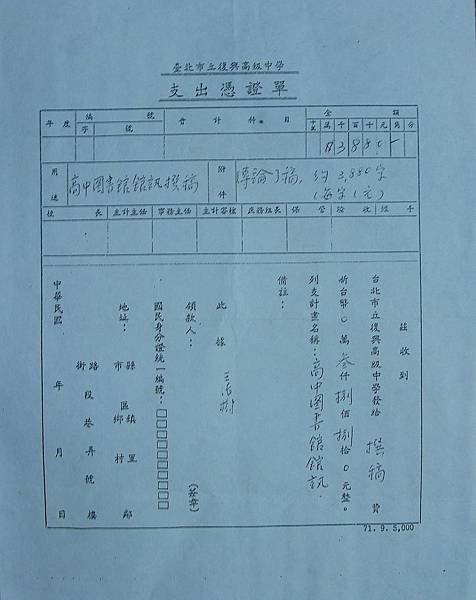 臺北市立復興高級中學
支出憑證單
年度 編號 會計科目 金額
字 號 十萬 萬 千 百 十 元 角 分
N 3 8 8 0 -
用途 高中図書館館訊撰稿 附件 專論1稿,約3,880字
(每字1元)
校長 主計主任 事務主任 主計審核 庶務組長 保管 驗收 經手
茲收到
台北市立復興高級中學發給 撰稿 費
新台幣0萬叁仟捌佰捌拾0元整。
列支計畫名稱:高中図書館館訊.
備註:
此據
領款人: (簽章)
國民身分證統一編號:□□□□□□□□□□
地址: 縣市 鎮鄉區 里村 鄰
路街 段 巷 弄 號 樓
中華民國 年 月 日
71. 9. 5,000